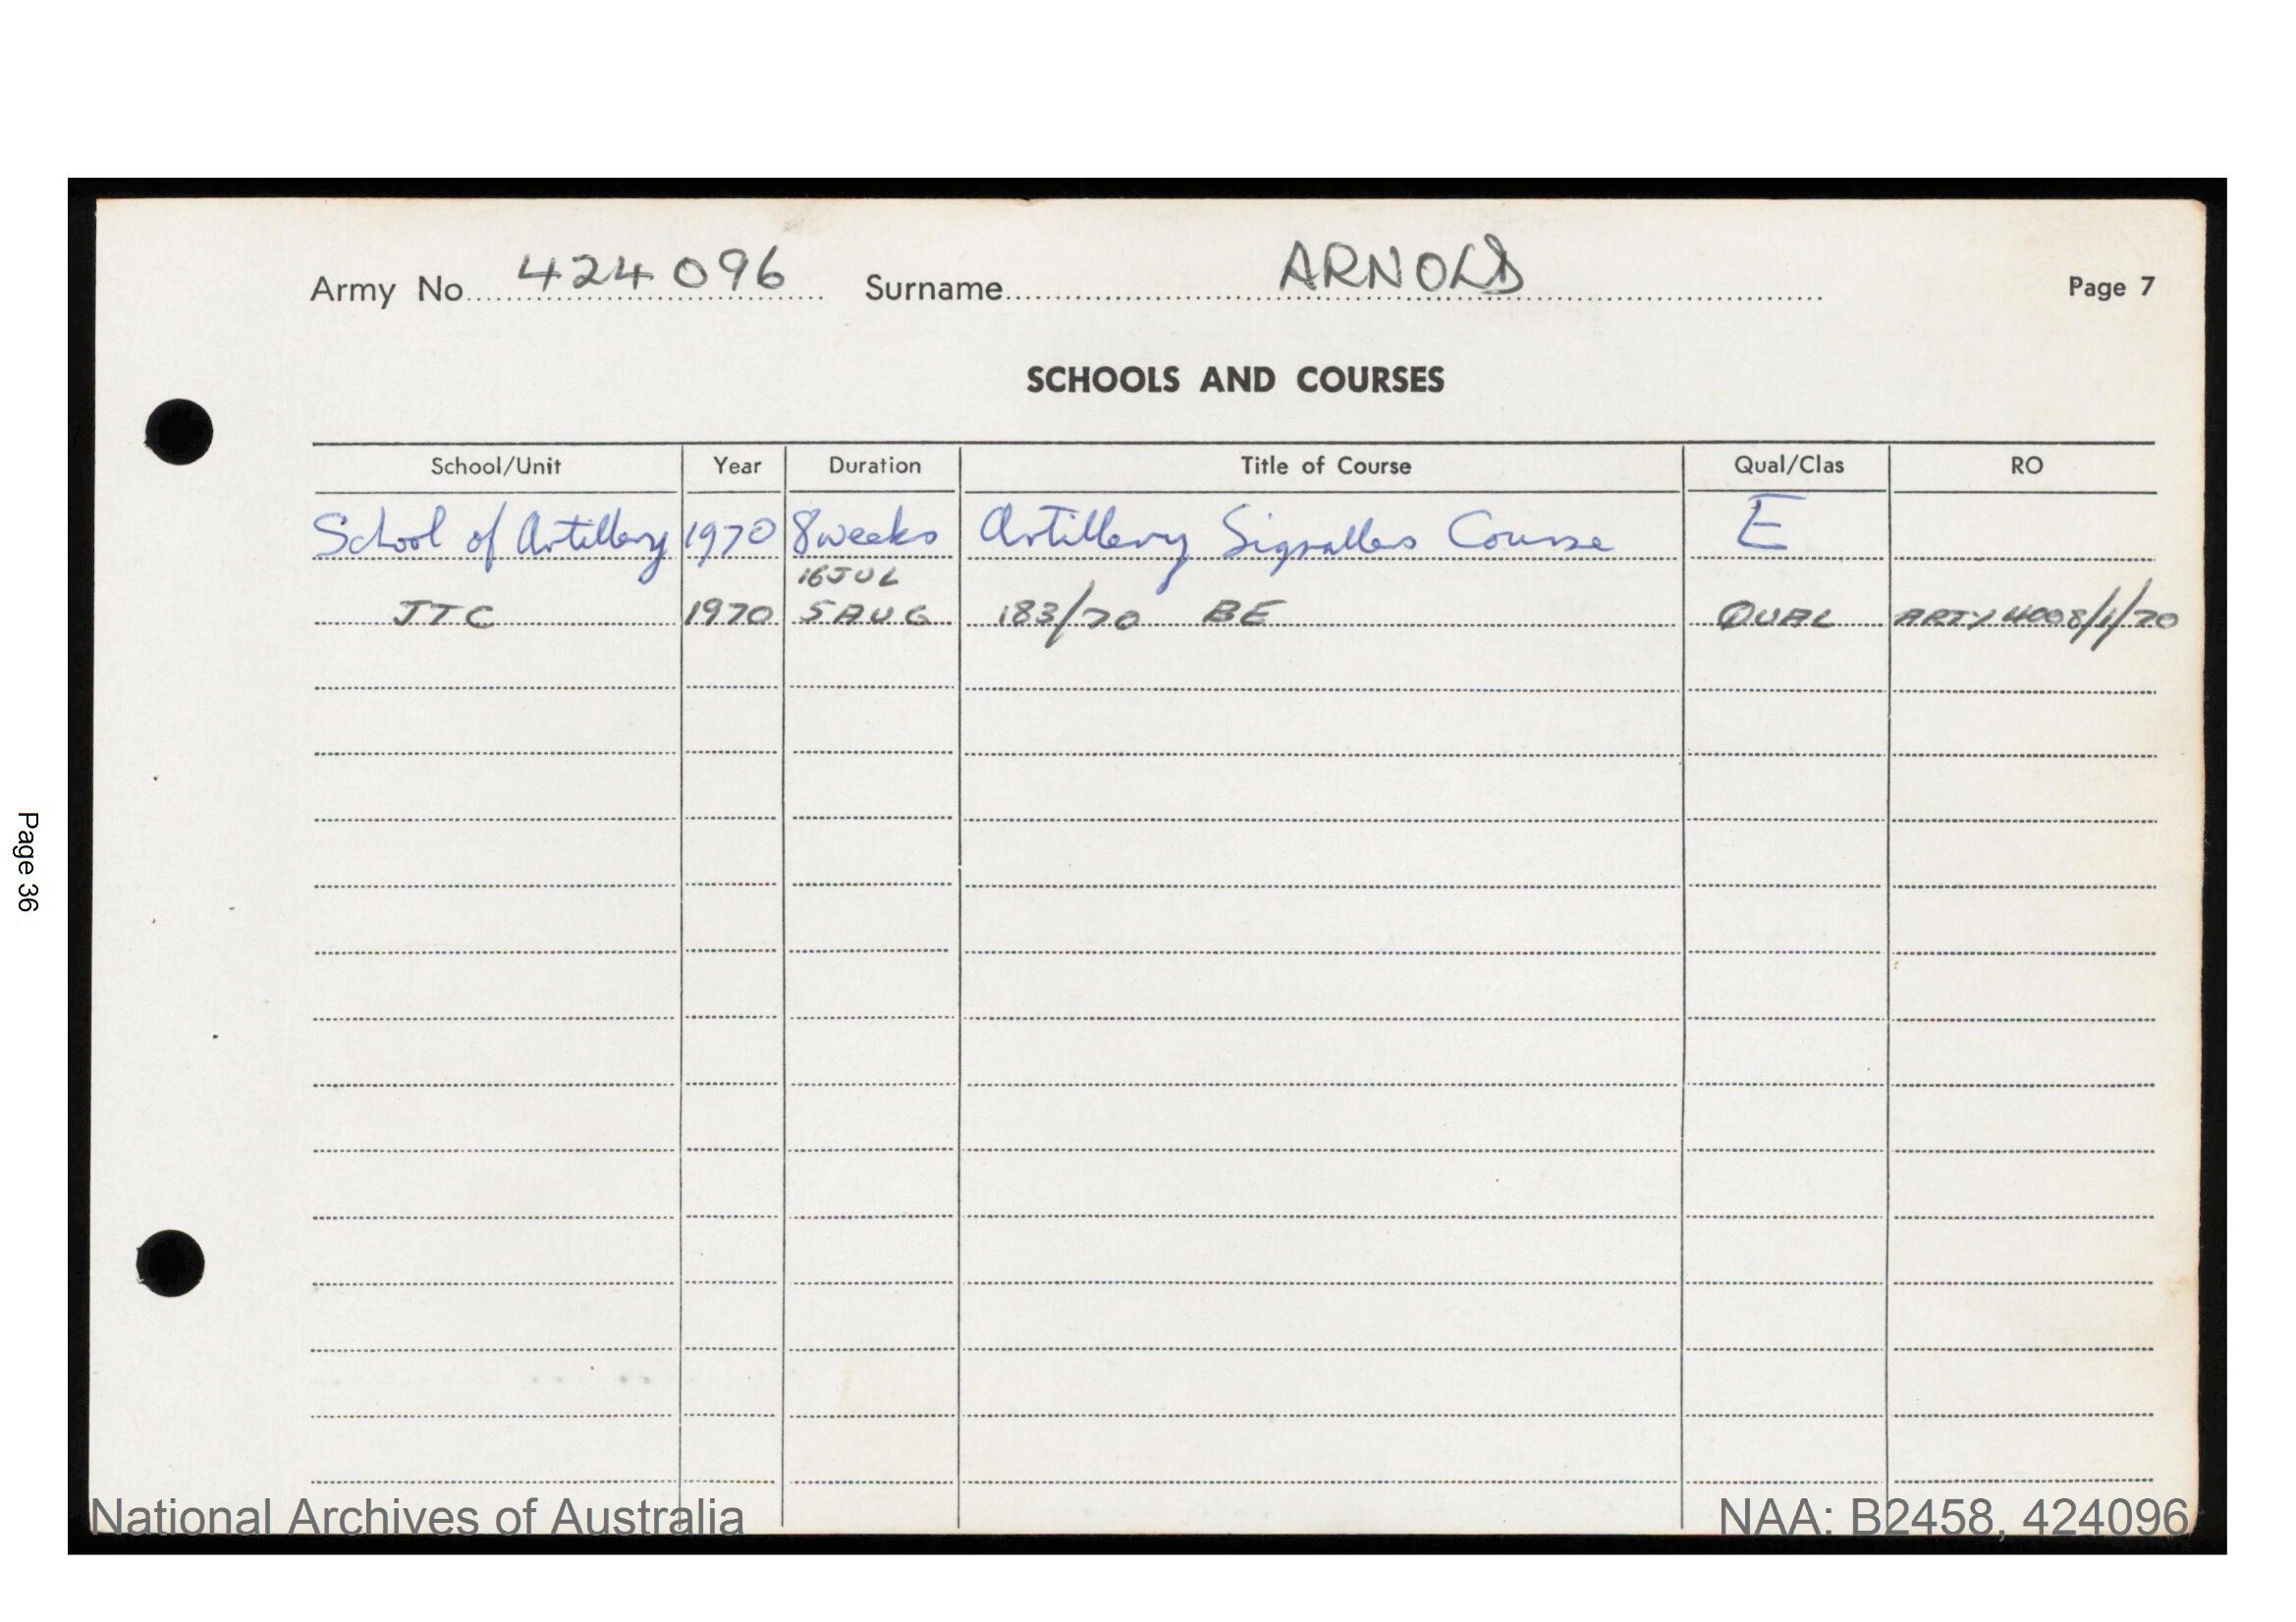 Army No. 424096 Surname ARNOLD Page 7
SCHOOLS AND COURSES
School/Unit Year Duration Title of Course Qual/Clas RO
School of Artillery 1970 8 weeks Artillery Signallers Course E
16 JUL
JTC 1970 5 AUG 183/70 BE QUAL ARTY 4008/1/70
Page 36
National Archives of Australia NAA: B2458, 424096